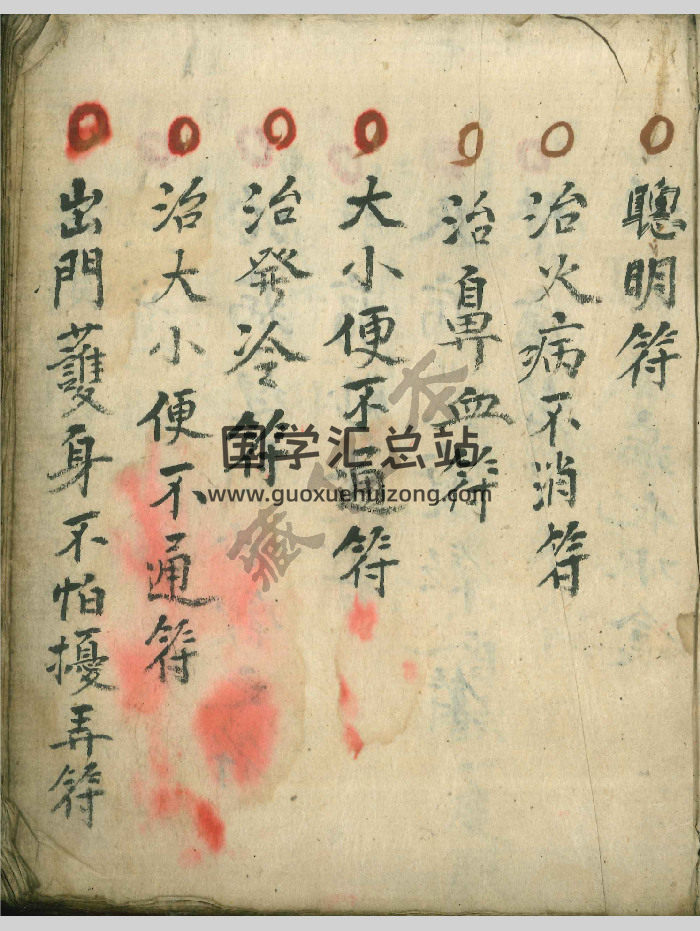 聰明符
治火病不消符
治鼻血符
大小便不通符
治發冷符
治大小便不通符
出門護身不怕擾弄符
国学汇总站
www.guoxuehuizong.com